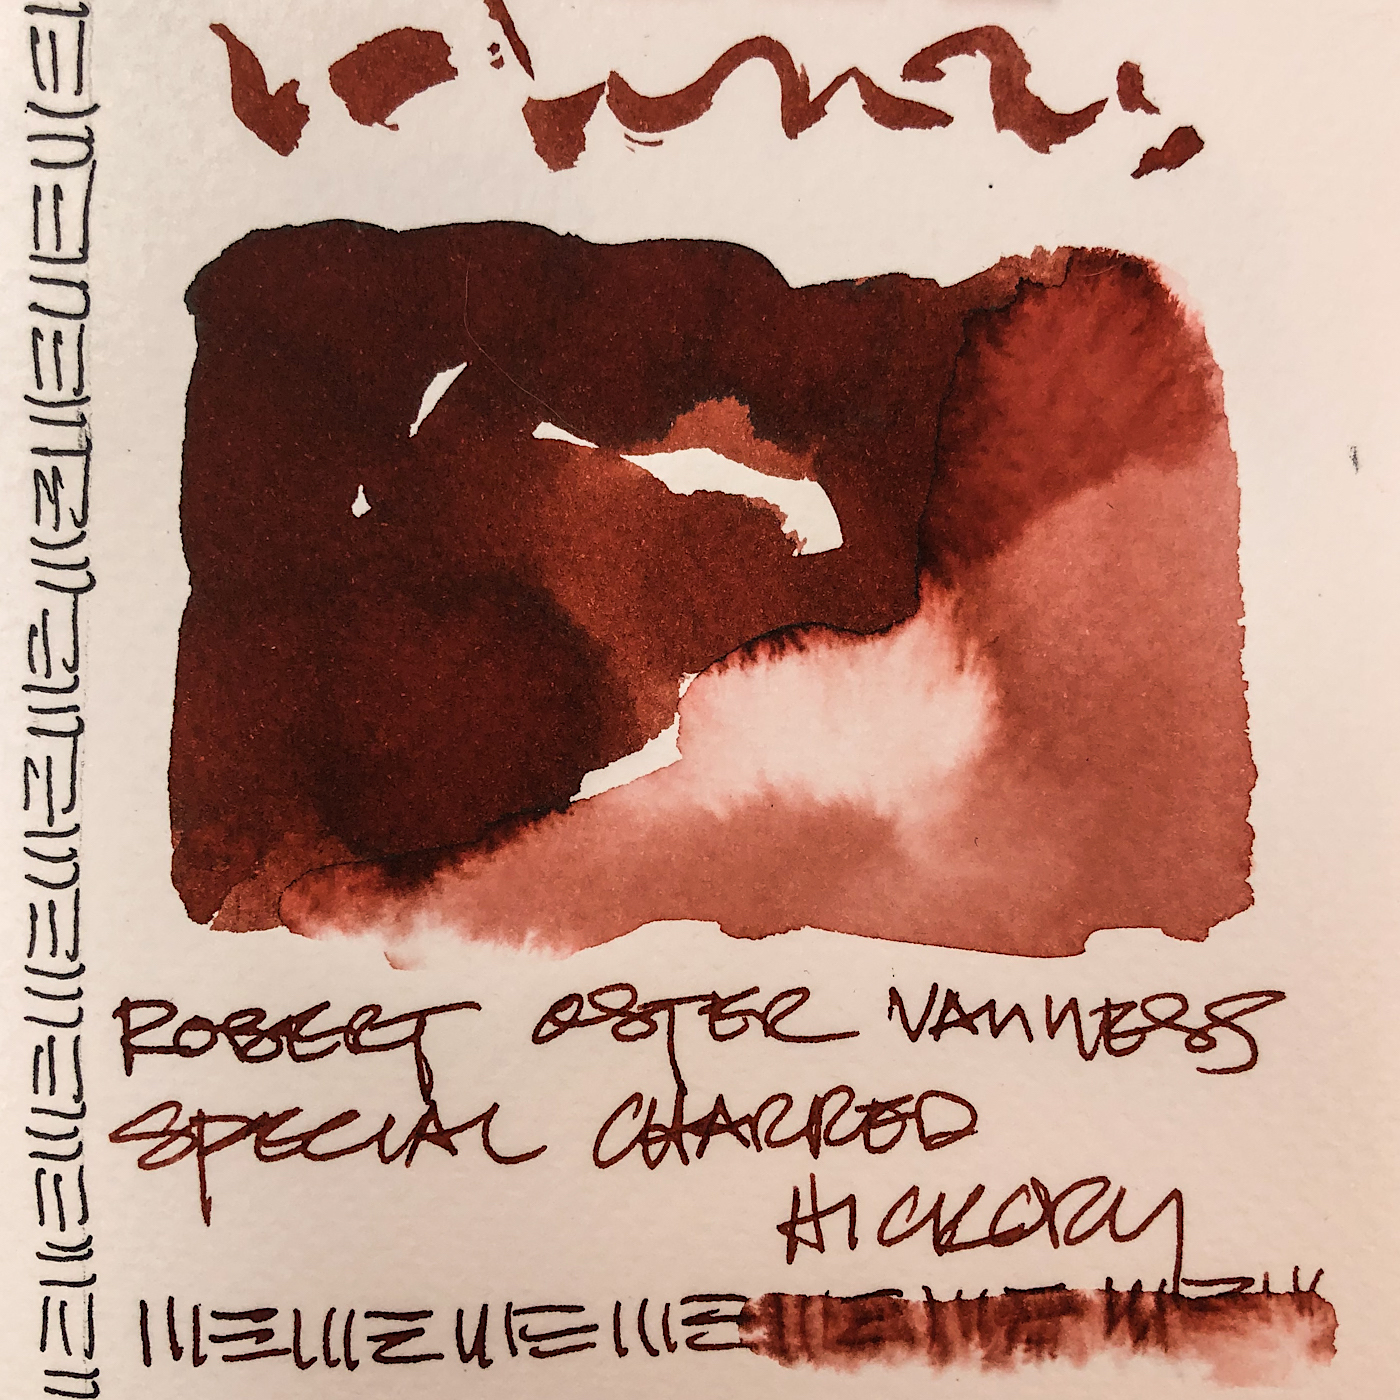 ROBERT OSTER VANNESS
SPECIAL CHARRED
HICKORY